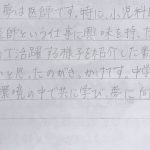 夢は医師です。特に、小児科
医師という仕事に興味を持った
で活躍する様子を紹介した
と思ったのがきっかけです。中学
環境の中で共に学び、夢に向